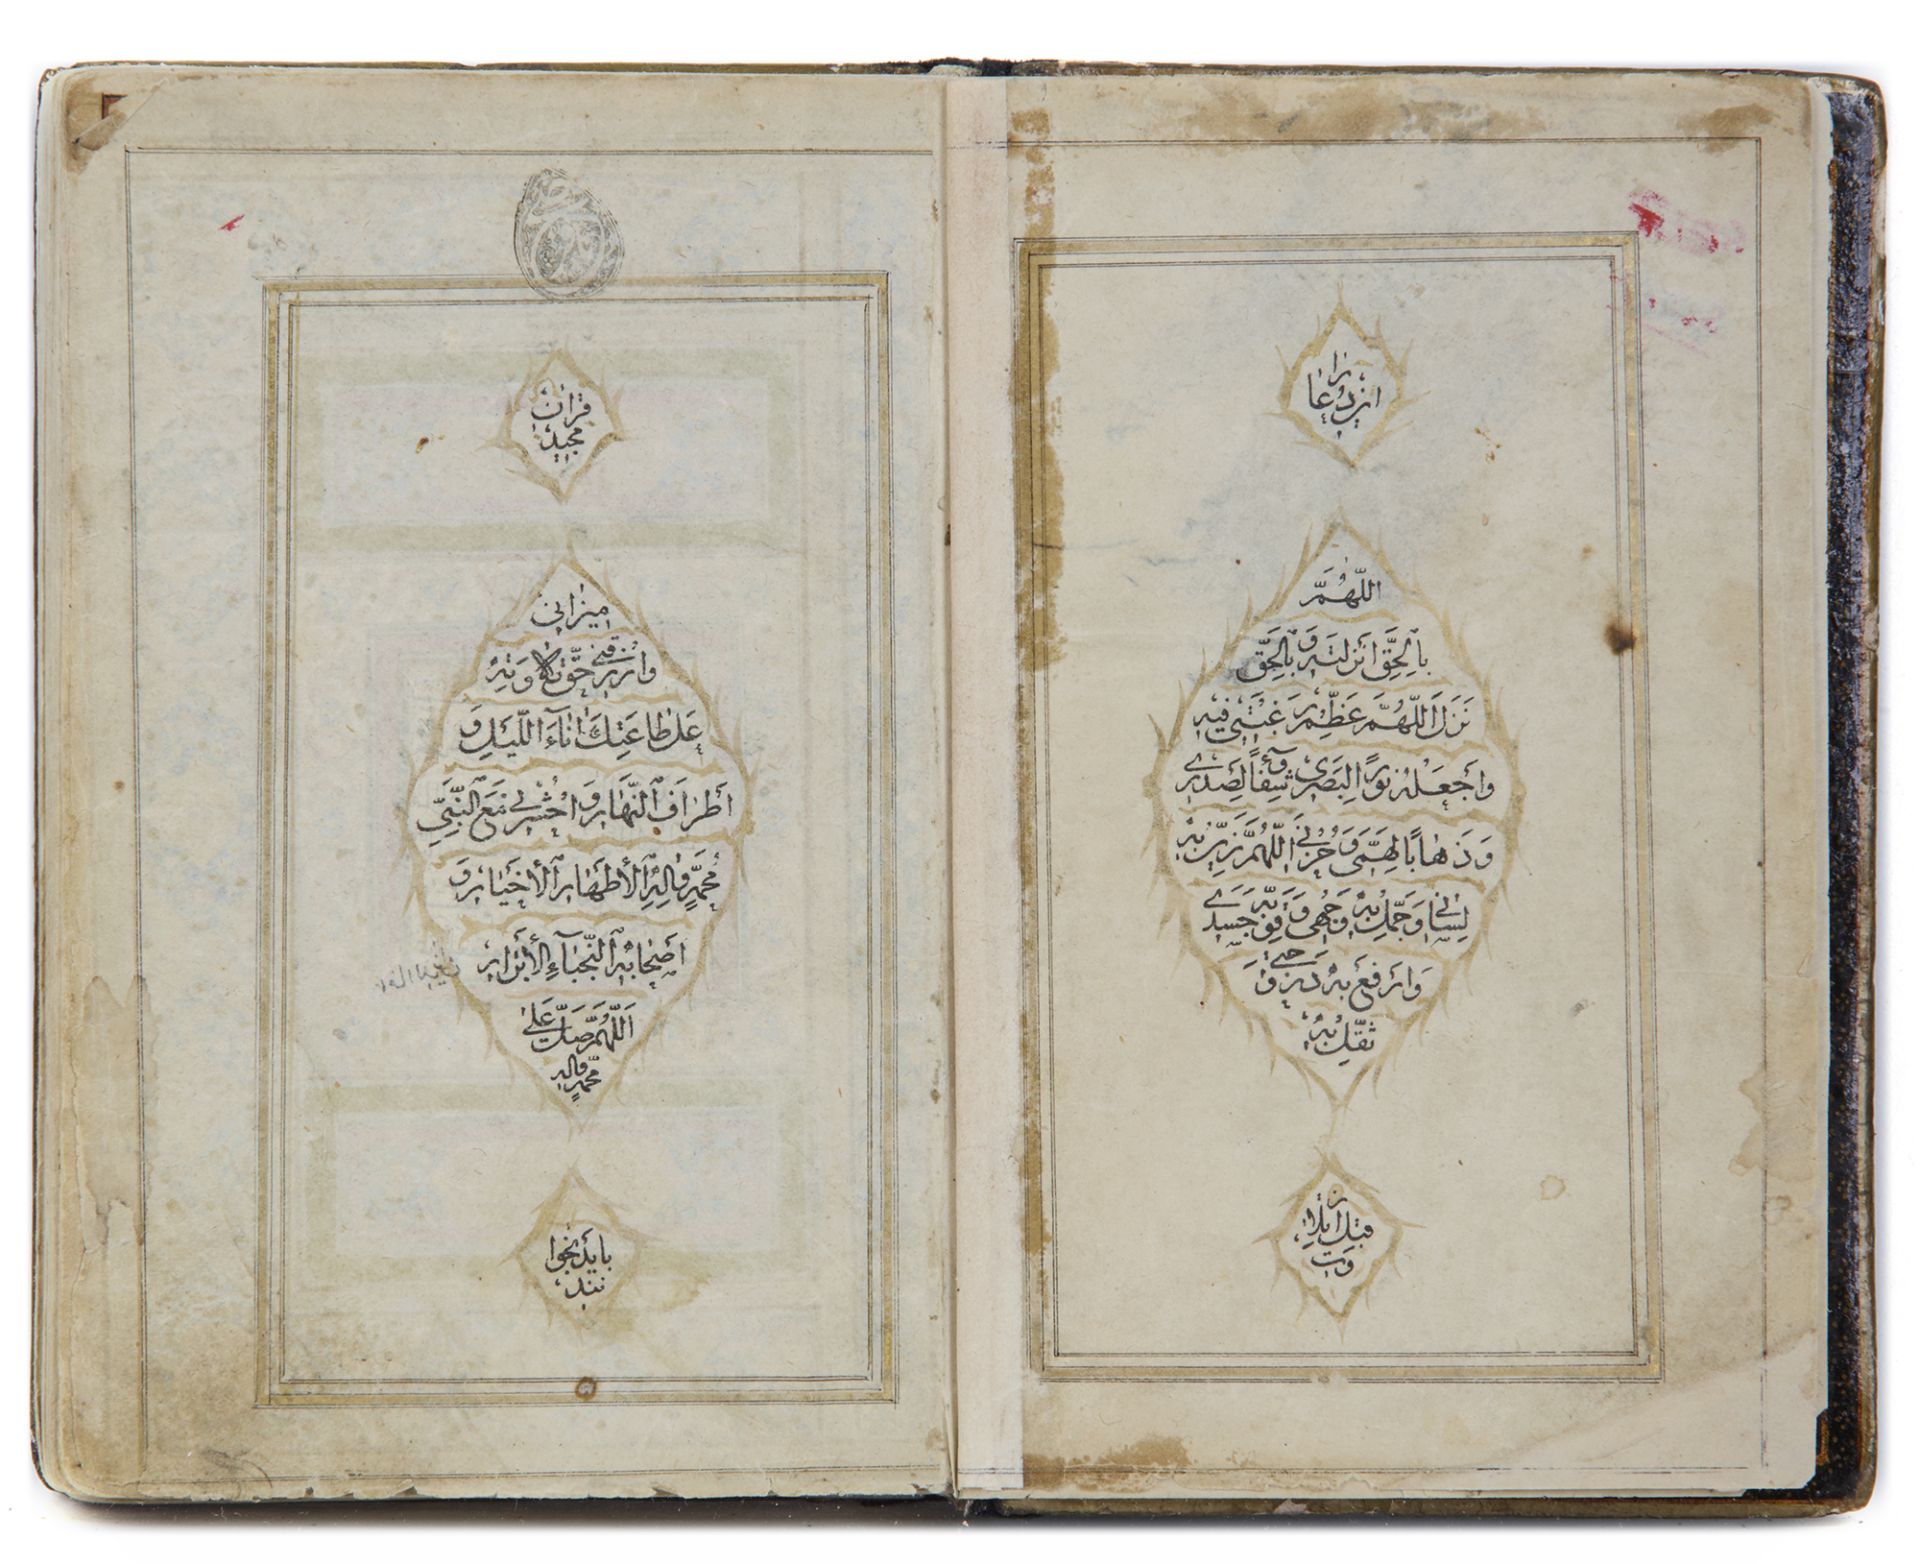 این دعا را
اللّهُمَّ
بِالْحَقِّ اَنْزَلْتَهُ وَ بِالْحَقِّ
نَزَلَ اَللّهُمَّ عَظِّمْ رَغْبَتی فیهِ
وَ اجْعَلْهُ نُوراً لِبَصَری وَ شِفٰاءً لِصَدْری
وَ ذَهٰاباً لِهَمّی وَ حُزْنی اَللّهُمَّ زَیِّنْ بِهِ
لِسٰانی وَ جَمِّلْ بِهِ وَجْهی وَ قَوِّ بِهِ جَسَدی
وَ ارْفَعْ بِهِ دَرَجَتی وَ
ثَقِّلْ بِهِ
قبل از تلا
وت
قرآن
مجید
میزانی
وَ ارْزُقْنی حَقَّ تِلٰاوَتِهِ
عَلیٰ طٰاعَتِكَ اٰنٰآءَ اللَّیْلِ وَ
اَطْرٰافَ النَّهٰارِ وَ احْشُرْنی مَعَ النَّبِیِّ
مُحَمَّدٍ وَ اٰلِهِ الْأَطْهٰارِ الْأَخْیٰارِ وَ
اَصْحٰابِهِ النُّجَبٰآءِ الْأَبْرٰارِ
اَللّهُمَّ صَلِّ عَلیٰ
مُحَمَّدٍ وَ اٰلِهِ
باید بخوا
نند